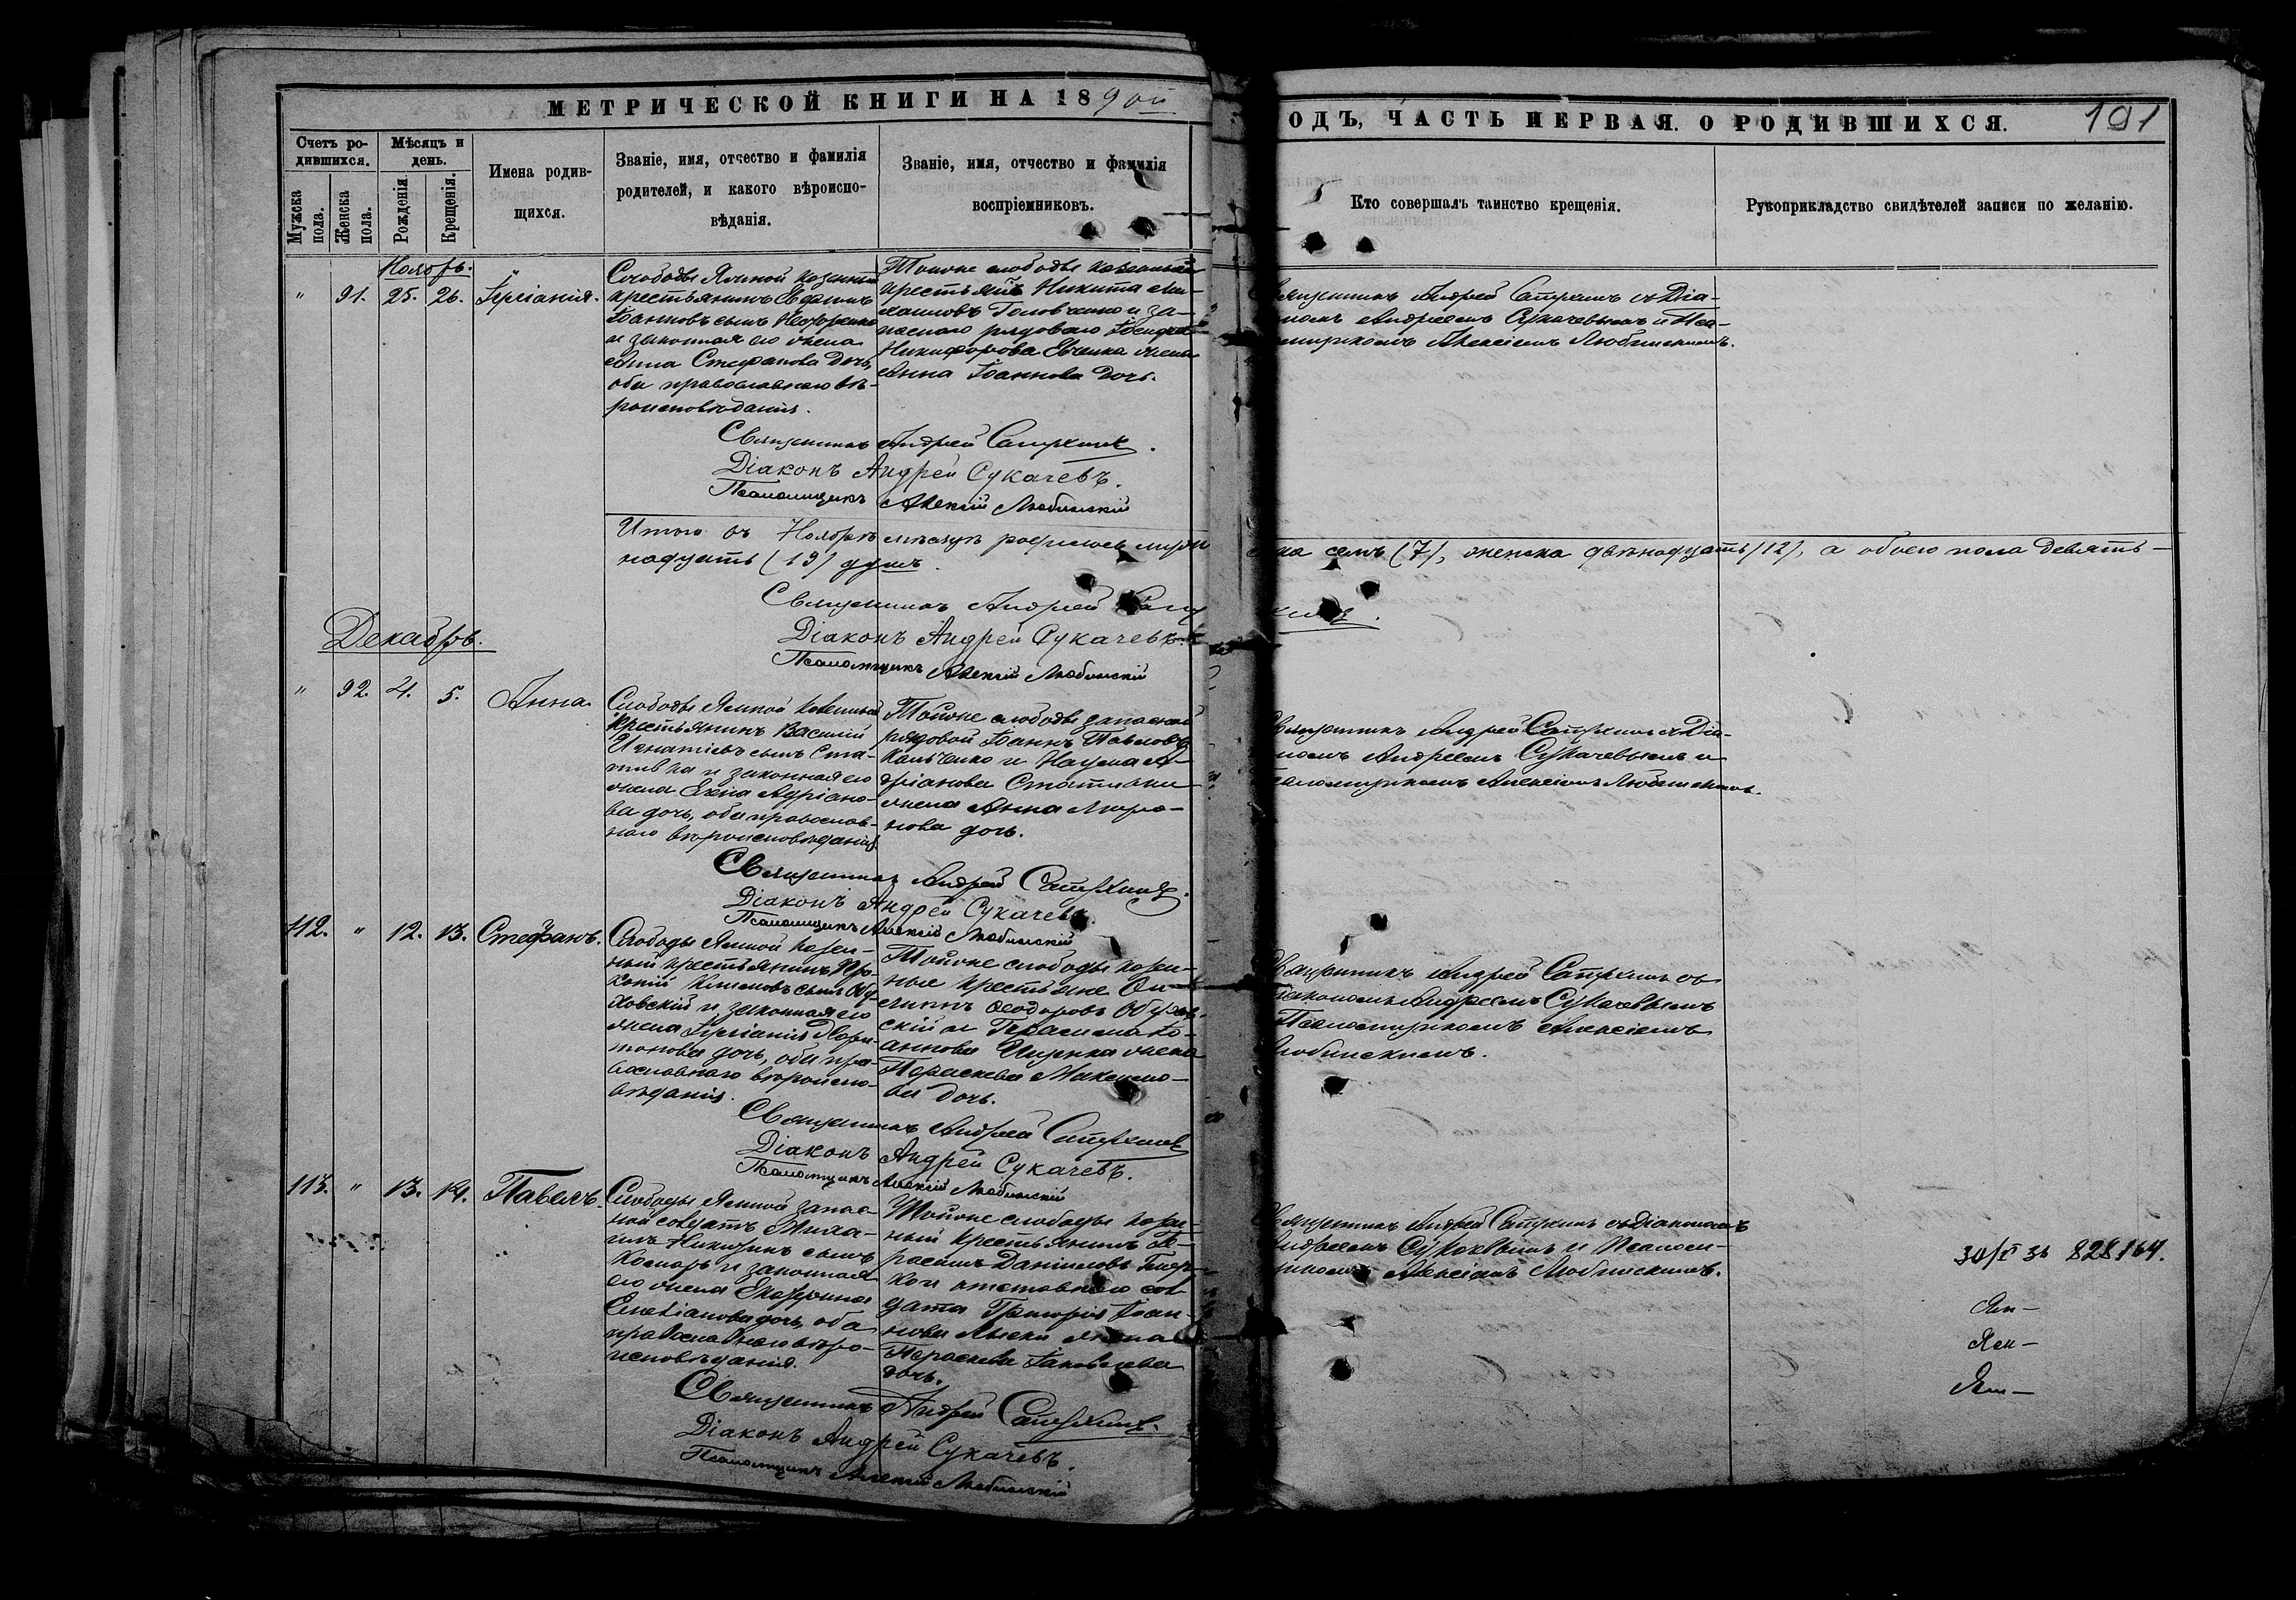 МЕТРИЧЕСКОЙ КНИГИ НА 1890й
ОДЪ, ЧАСТЬ ПЕРВАЯ. О РОДИВШИХСЯ.
191
Счетъ ро-
дившихся.
Мужска пола.
Женска пола.
Мѣсяцъ и
день.
Рожденія.
Крещенія.
Имена родив-
щихся.
Званіе, имя, отчество и фамилія
родителей, и какого вѣроиспо-
вѣданія.
Званіе, имя, отчество и фамилія
воспріемниковъ.
Кто совершалъ таинство крещенія.
Рукоприкладство свидѣтелей записи по желанію.
Ноябрь.
" 91. 25. 26.
Слободы Ямной казенный
крестьянинъ
Іоанновъ сынъ
и законная его жена
Анна Стефанова дочь,
оба православнаго вѣ-
роисповѣданія.
Тойже слободы казенный
крестьянинъ Никита Ми-
хаиловъ Головченко и за-
паснаго рядоваго
Никифорова жена
Анна Іоаннова дочь.
Священникъ Андрей с Діа-
кономъ Андреемъ Сукачевымъ и Пса-
ломщикомъ Алексіемъ Любинскимъ.
Священникъ Андрей
Діаконъ Андрей Сукачевъ.
Псаломщикъ Алексій Любинскій
Итого въ Ноябрѣ мѣсяцѣ родилось мужс
ка семь (7), женска двѣнадцать (12), а обоего пола девять-
надцать (19) душъ.
Священникъ Андрей
Діаконъ Андрей Сукачевъ.
Псаломщикъ Алексій Любинскій
Декабрь.
" 92. 4. 5. Анна.
Слободы Ямной казенный
крестьянинъ Василій
Игнатіевъ сынъ Ста-
тивка и законная его
жена Елена Адріано-
ва дочь, оба православ-
наго вѣроисповѣданія.
Тойже слободы запасный
рядовой Іоаннъ Павловъ
и Наума А-
дріанова Стативки
жена Анна Миро-
нова дочь.
Священникъ Андрей с Діа-
кономъ Андреемъ Сукачевымъ и
Псаломщикомъ Алексіемъ Любинскимъ.
Священникъ Андрей
Діаконъ Андрей Сукачевъ.
Псаломщикъ Алексій Любинскій
112. " 12. 13. Стефанъ.
Слободы Ямной казен-
ный крестьянинъ Про-
копій Климовъ сынъ Обу-
ховскій и законная его
жена Хари-
тонова дочь, оба пра-
вославнаго вѣроиспо-
вѣданія.
Тойже слободы казен-
ные крестьяне
Ѳеодоровъ Обухов-
скій и Герасима Іо-
аннова жена
Параскева Максимо-
ва дочь.
Священникъ Андрей съ
Діакономъ Андреемъ Сукачевымъ
Псаломщикомъ Алексіемъ
Любинскимъ.
Священникъ Андрей
Діаконъ Андрей Сукачевъ.
Псаломщикъ Алексій Любинскій
113. " 13. 14. Павелъ.
Слободы Ямной запас-
ной солдатъ Миха-
илъ Никитинъ сынъ
Комарь и законная
его жена Екатерина
дочь, оба
православнаго вѣро-
исповѣданія.
Тойже слободы казен-
ный крестьянинъ Ге-
расимъ Даніиловъ
и отставнаго сол-
дата Григорія Іоан-
нова жена
Параскева Іаковлева
дочь.
Священникъ Андрей съ Діакономъ
Андреемъ Сукачевымъ и Псалом-
щикомъ Алексіемъ Любинскимъ.
828164.
Священникъ Андрей
Діаконъ Андрей Сукачевъ.
Псаломщикъ Алексій Любинскій